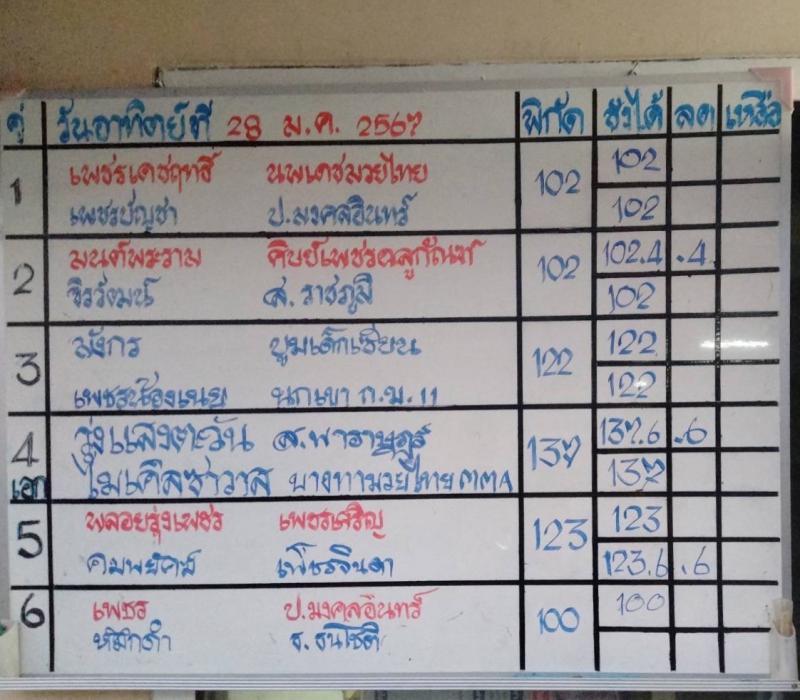 คู่ วันอาทิตย์ที่ 28 ม.ค. 2567 พิกัด ชั่งได้ ลด เหลือ
1 เพชรเดชฤทธิ์ นพเดชมวยไทย 102 102
เพชรบัญชา ป.มงคลอินทร์ 102
2 มนต์พระราม 102 102.4 .4
จิรวัฒน์ ส.ราชภูมิ 102
3 มังกร บูมเด็กเซียน 122 122
เพชรน้องเนย นกเขา ก.ม.11 122
4 รุ่งแสงตะวัน ส.พาราษฎร์ 137 137.6 .6
เอก ไมเคิลซาวาส บางทามวยไทย 137
5 พลอยรุ่งเพชร เพชรเจริญ 123 123
คมพยัคฆ์ เพชรจินดา 123.6 .6
6 เพชร ป.มงคลอินทร์ 100 100
หมึกดำ ช.ธนโชติ